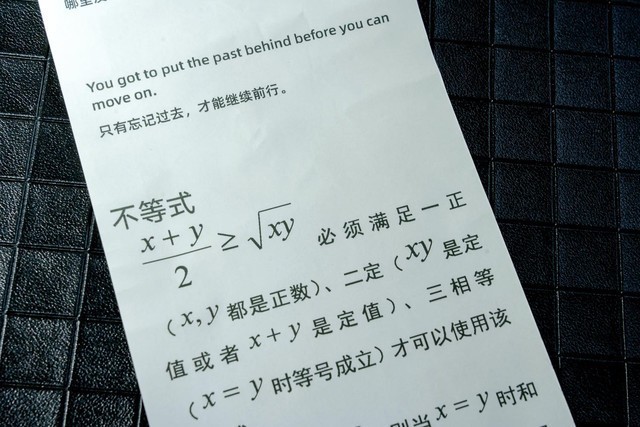 You got to put the past behind before you can
move on.
只有忘记过去，才能继续前行。
不等式
x + y / 2 ≥ √xy 必须满足一正
（x, y 都是正数）、二定（xy 是定
值或者 x + y 是定值）、三相等
（x = y 时等号成立）才可以使用该
则当 x = y 时和